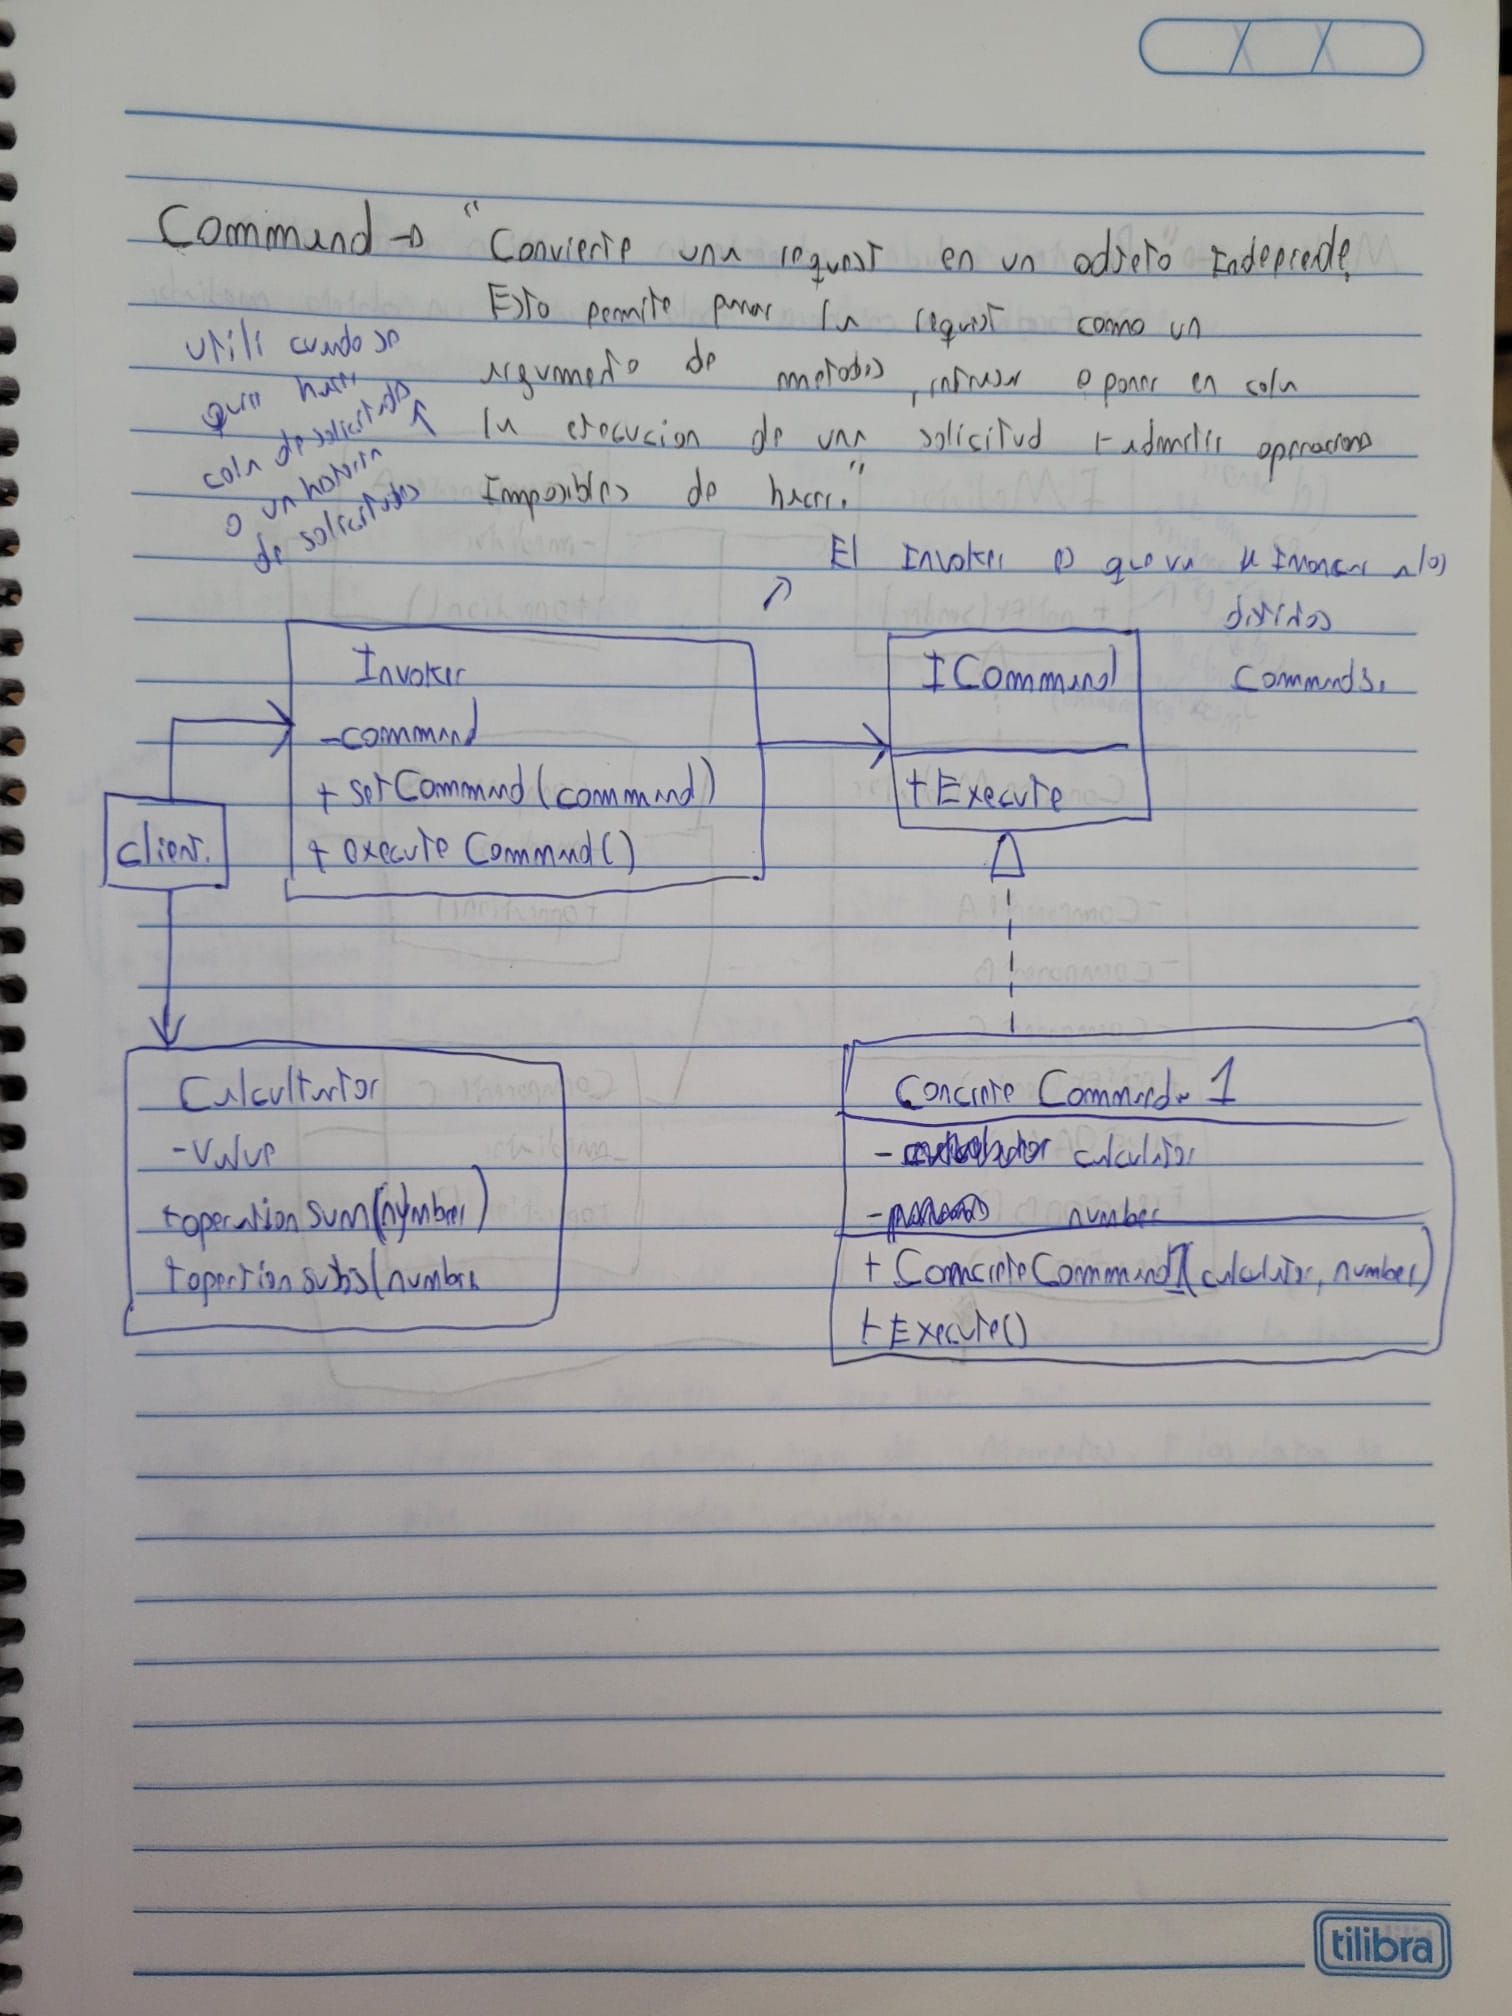 Command → "Convierte una request en un objeto" Independe.
Esto permite pasar la request como un
argumento de metodos, retrasar o poner en cola
la ejecucion de una solicitud y admitir operaciones
Imposibles de hacer."
utili cuando se
quie hacer
cola de solicitudes
o un historia
de solicitudes
El Invoker es que va a Invocar a los
distintos
Commands.
Invoker
-command
+ setCommand(command)
+ executeCommand()
ICommand
+ Execute
client.
Calcultator
-value
+operation sum(number)
+opertion subs(number
Concrete Command 1
- calculator
- number
+ ConcreteCommand1(calculator, number)
+ Execute()
tilibra